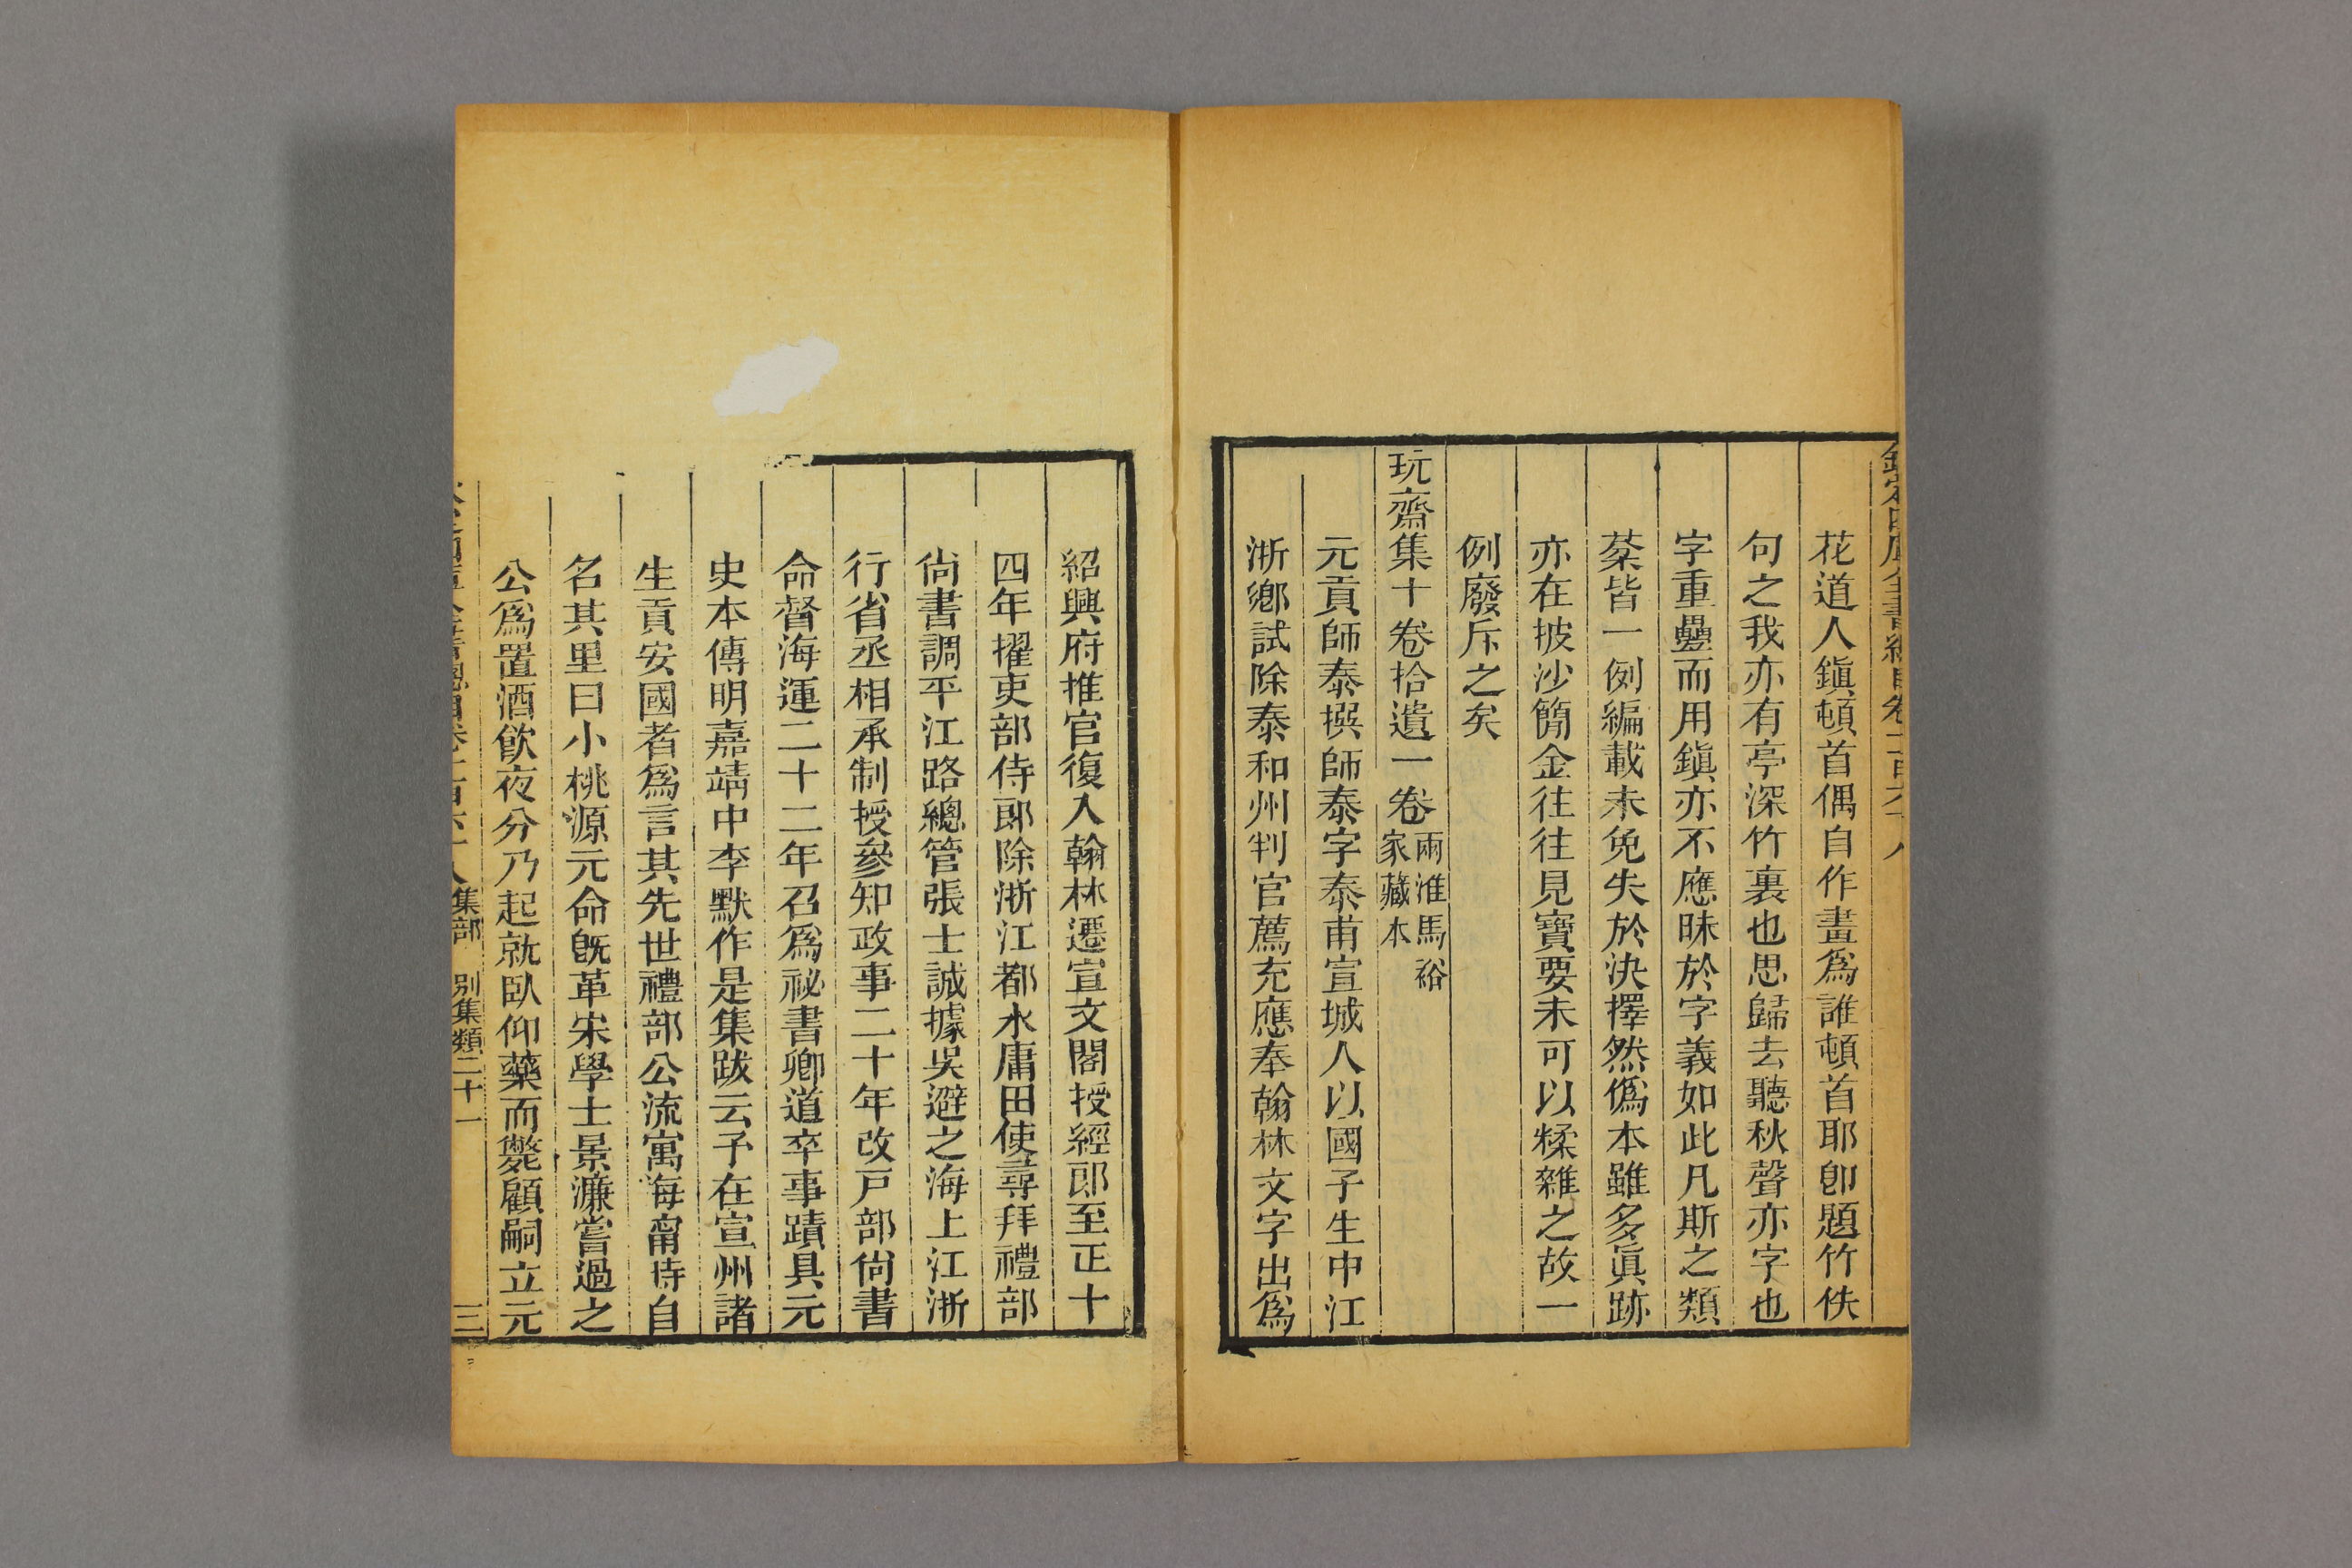 欽定四庫全書總目卷一百六十八
花道人鎭頓首偶自作畫爲誰頓首耶卽題竹佚
句之我亦有亭深竹裏也思歸去聽秋聲亦字也
字重疊而用鎭亦不應昧於字義如此凡斯之類
棻皆一例編載未免失於決擇然僞本雖多眞跡
亦在披沙簡金往往見寶要未可以糅雜之故一
例廢斥之矣
玩齋集十卷拾遺一卷
兩淮馬裕
家藏本
元貢師泰撰師泰字泰甫宣城人以國子生中江
浙鄉試除泰和州判官薦充應奉翰林文字出爲
紹興府推官復入翰林遷宣文閣授經郎至正十
四年擢吏部侍郎除浙江都水庸田使尋拜禮部
尙書調平江路總管張士誠據吳避之海上江浙
行省丞相承制授參知政事二十年改戸部尙書
命督海運二十二年召爲祕書卿道卒事蹟具元
史本傳明嘉靖中李默作是集跋云予在宣州諸
生貢安國者爲言其先世禮部公流寓海甯時自
名其里曰小桃源元命旣革宋學士景濂嘗過之
公爲置酒飮夜分乃起就臥仰藥而斃顧嗣立元
欽定四庫全書總目卷一百六十八 集部 別集類二十一 三